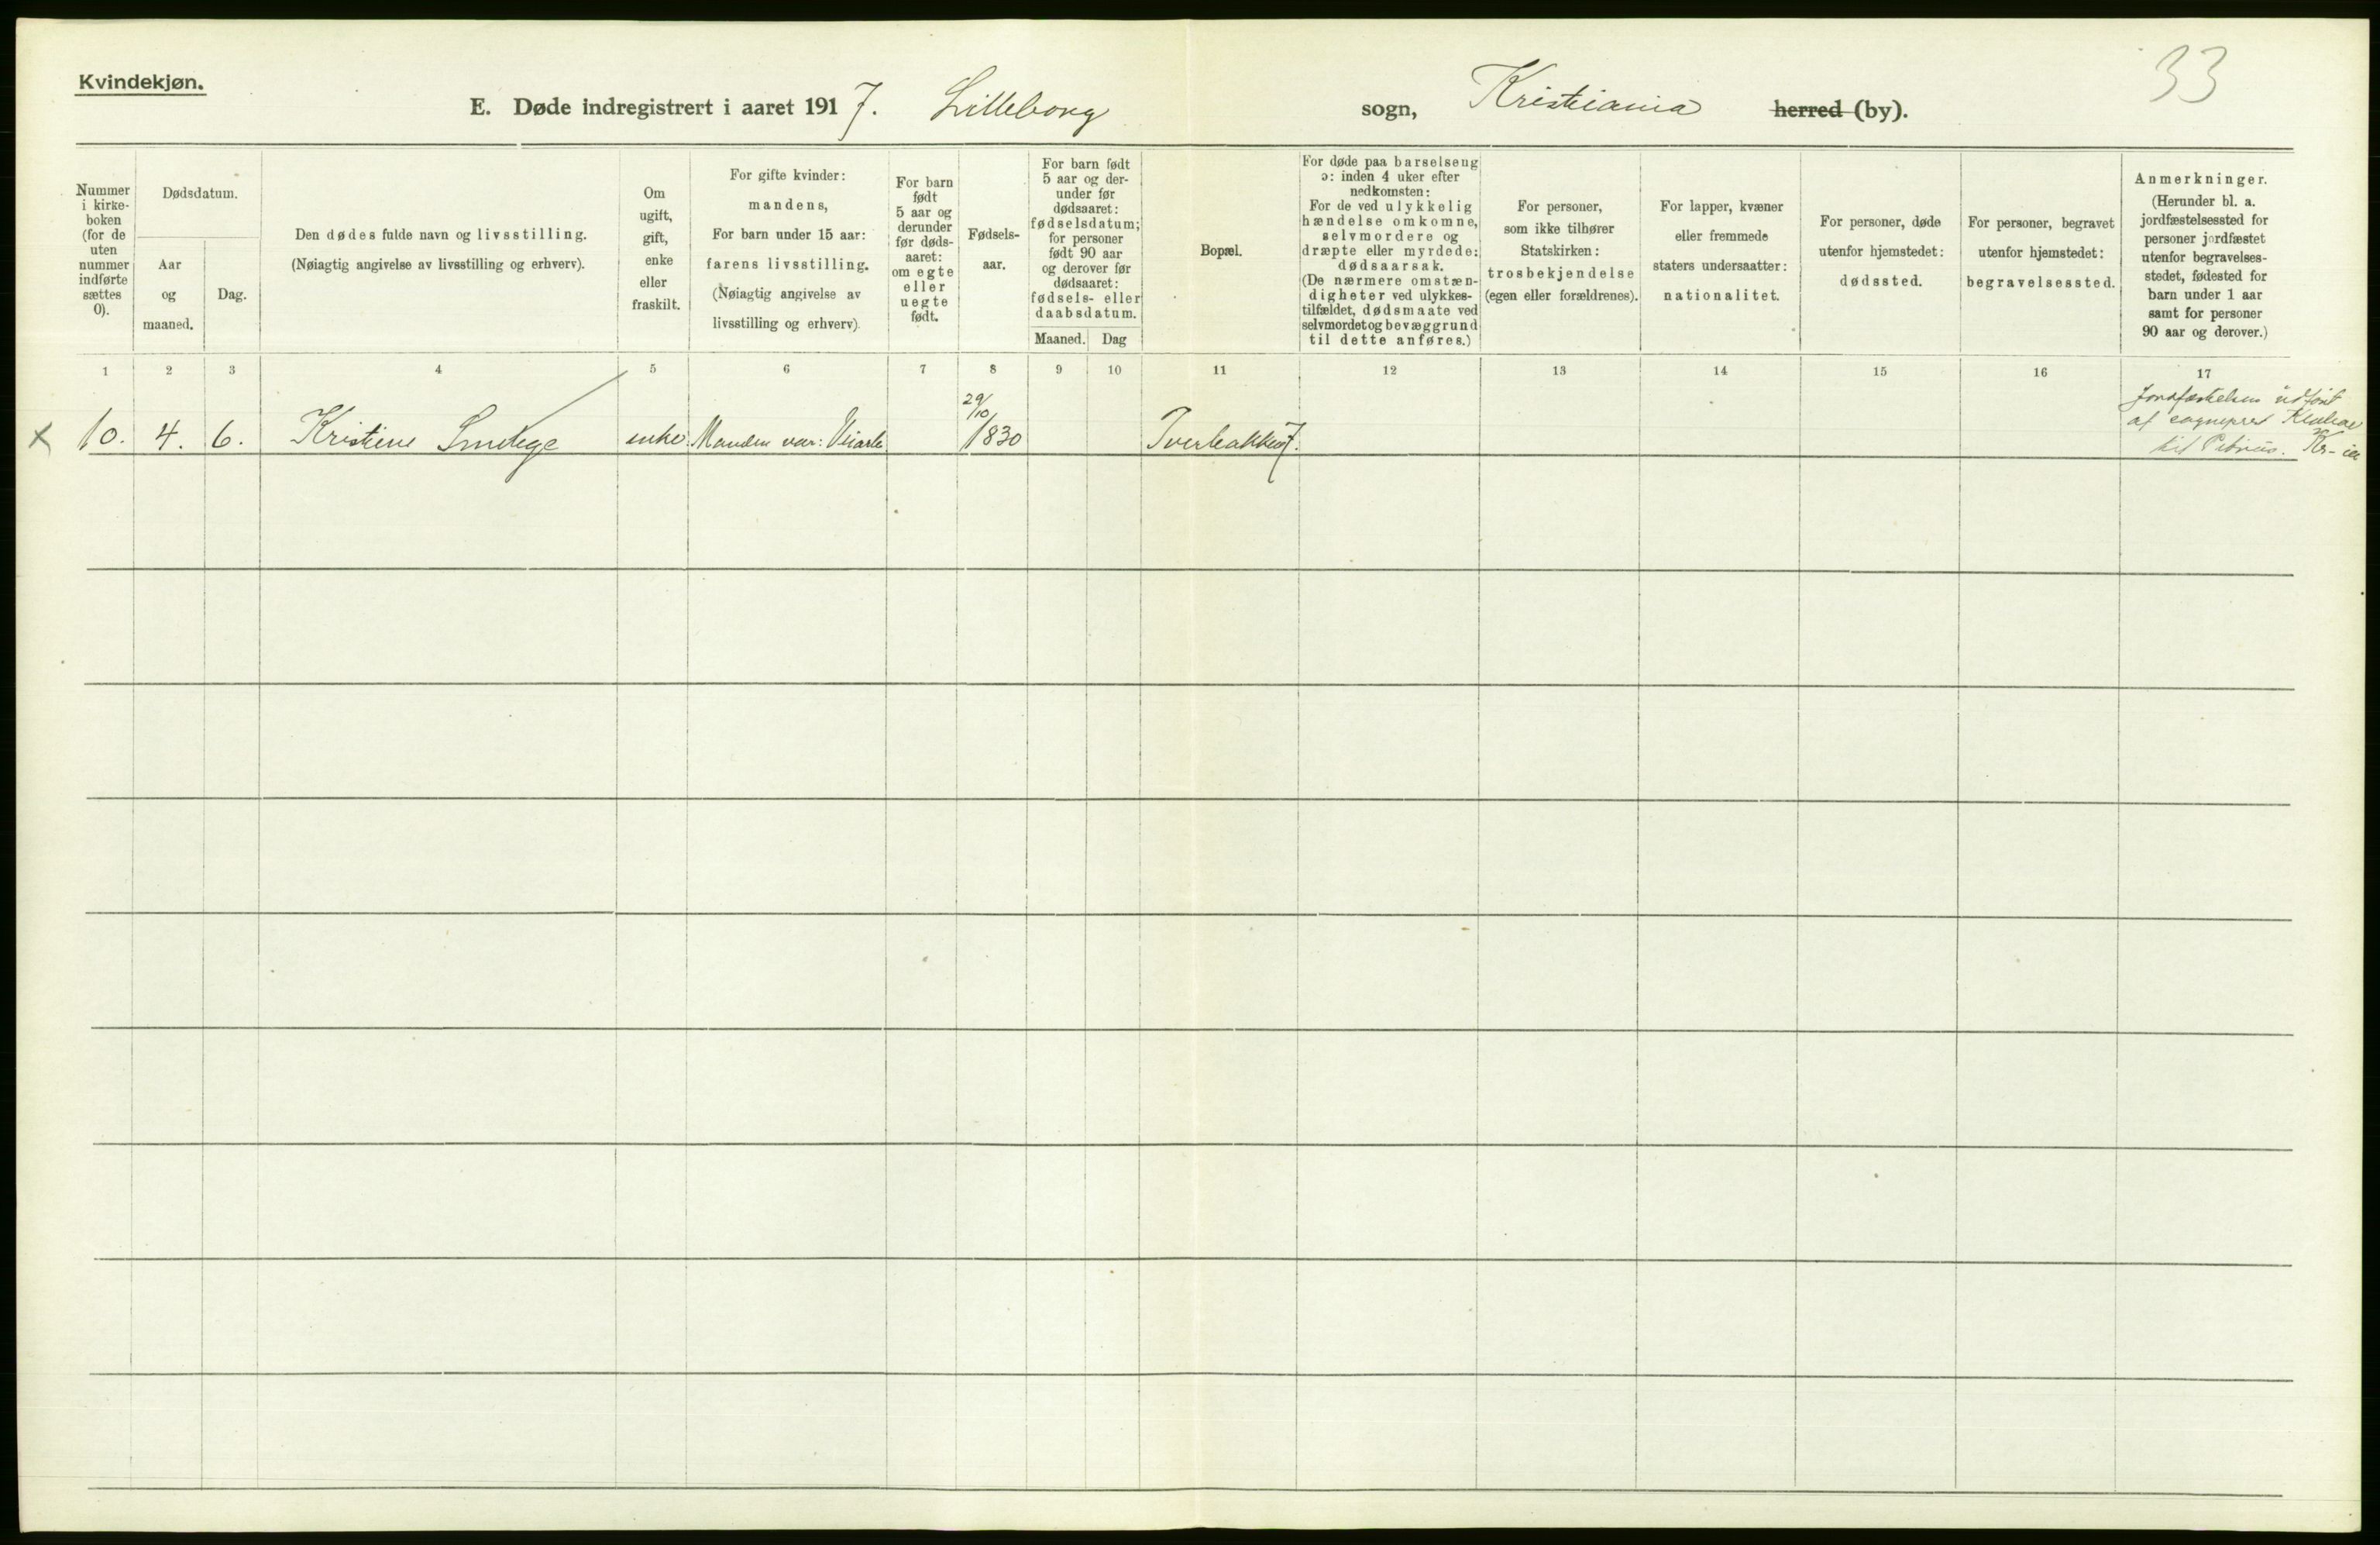 Kvindekjøn.
33
E. Døde indregistrert i aaret 1917. Lilleborg sogn, Kristiania herred (by).
Nummer i kirke-
boken
(for de
uten
nummer
indførte
sættes
0).
Dødsdatum.
Aar
og
maaned.
Dag.
Den dødes fulde navn og livsstilling.
(Nøiagtig angivelse av livsstilling og erhverv).
Om
ugift,
gift,
enke
eller
fraskilt.
For gifte kvinder:
mandens,
For barn under 15 aar:
farens livsstilling.
(Nøiagtig angivelse av
livsstilling og erhverv).
For barn
født
5 aar og
derunder
før døds-
aaret:
om egte
eller
uegte
født.
Fødsels-
aar.
For barn født
5 aar og der-
under før
dødsaaret:
fødselsdatum;
for personer
født 90 aar
og derover før
dødsaaret:
fødsels- eller
daabsdatum.
Maaned. Dag
Bopæl.
For døde paa barselseng
ɔ: inden 4 uker efter
nedkomsten:
For de ved ulykkelig
hændelse omkomne,
selvmordere og
dræpte eller myrdede:
dødsaarsak.
(De nærmere omstæn-
digheter ved ulykkes-
tilfældet, dødsmaate ved
selvmordet og bevæggrund
til dette anføres.)
For personer,
som ikke tilhører
Statskirken:
trosbekjendelse
(egen eller forældrenes).
For lapper, kvæner
eller fremmede
staters undersaatter:
nationalitet.
For personer, døde
utenfor hjemstedet:
dødssted.
For personer, begravet
utenfor hjemstedet:
begravelsessted.
Anmerkninger.
(Herunder bl. a.
jordfæstelsessted for
personer jordfæstet
utenfor begravelses-
stedet, fødested for
barn under 1 aar
samt for personer
90 aar og derover.)
1 2 3 4 5 6 7 8 9 10 11 12 13 14 15 16 17
x 10. 4. 6. Kristine enke. Manden var: 29/10 1830 7.
Jordfæstelsen udført
af sogneprest
til Kr-ia